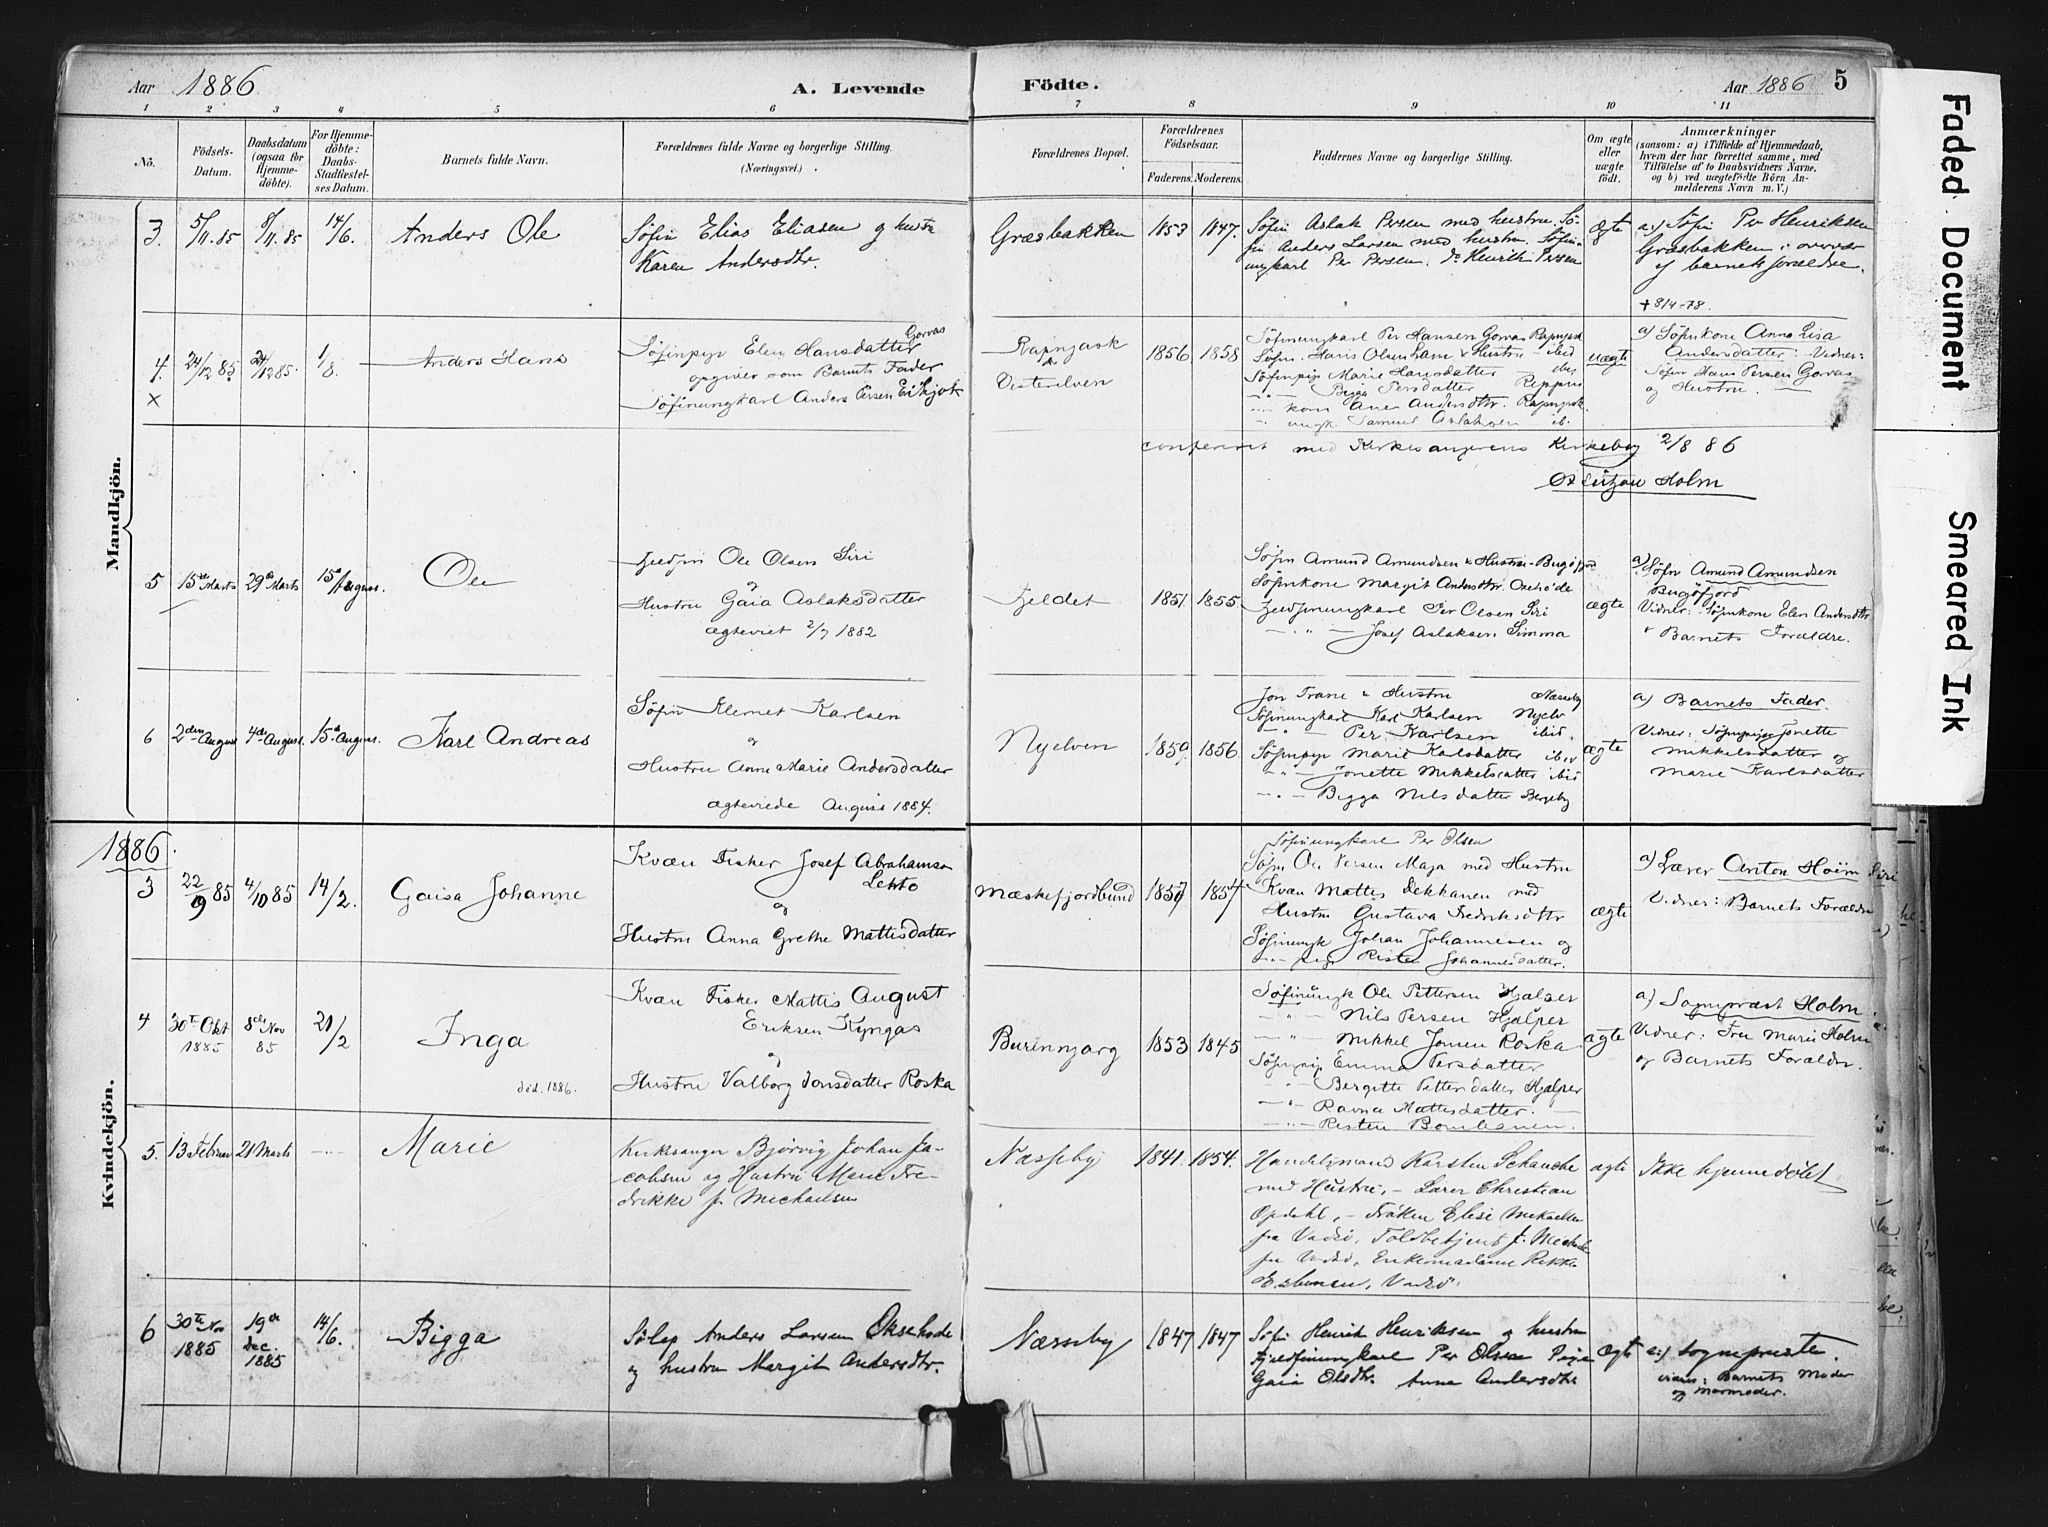 Aar 1886
A. Levende
Födte.
Aar 1886 5
1 2 3 4 5 6 7 8 9 10 11
No.
Födsels-Datum.
Daabsdatum (ogsaa for Hjemmedöbte).
For Hjemmedöbte: Daabs-Stadfæstelses Datum.
Barnets fulde Navn.
Forældrenes fulde Navne og borgerlige Stilling.
(Næringsvei.)
Forældrenes Bopæl.
Forældrenes Födselsaar.
Faderens. Moderens.
Faddernes Navne og borgerlige Stilling.
Om ægte eller uægte födt.
Anmærkninger
(saasom: a) i Tilfælde af Hjemmedaab,
hvem der har forrettet samme, med
Tilföielse af to Daabsvidners Navne,
og b) ved uægtefödte Börn Anmelderens Navn m. V.)
Mandkjön.
3. 5/11.85 8/11.85 14/6. Anders Ole
Søfin Elias Eliasen og hustr
Karen Andersdtr.
Græsbakken 1853 1847.
Søfin Aslak Persen med hustru Sö-
fin Anders Larsen med hustru. Søfin-
ungkarl Per Persen. do Henrik Persen
ægte
a.) Søfin Per Henriksen
Græsbakken i overvær
af barnets forældre.
+ 814-78
4. 24/12 85. 24/12 85. 1/8. Anders Hans
×
Søfinpige Elen Hansdatter Gorvas
opgiver som Barnets Fader
Søfinungkarl Anders Persen
Vesterelven
1856 1858
Søfinungkarl Per Hansen Gorvas
Søfin Hans Olsen & Hustru ibid
Søfinpige Marie Hansdatter ibid
Bigga Persdatter
kone Ane Andersdtr.
ungk. Samuel Aslaksen ib.
uægte
a) Søfinkone Anna Lisa
Andersdatter. Vidner:
Søfin Hans Persen Gorvas
og Hustru.
confereret med Kirkesangerens Kirkebog 2/8 86
Holm
5 15de Marts 29de Marts 15de August. Ole
Fjeldfin Ole Olsen Siri
og
Hustru Gaia Aslaksdatter
ægteviet 2/7 1882
Fjeldet 1851. 1855.
Søfin Amund Amundsen & Hustru Bugöfjord
Søfinkone Margit Andersdtr.
Fjeldfinungkarl Per Olsen Siri
— " — Josef Aslaksen Simma
ægte
a) Søfin Amund Amundsen
Bugöfjord
Vidner: Søfinkone Elen Andersdtr
& Barnets Forældre.
6 2den August 4de August. 15de August. Karl Andreas
Søfin Klemet Karlsen
og
Hustru Anne Marie Andersdatter
ægteviede August 1884.
Nyelven 1859. 1856.
Jon Trane & Hustru Næsseby
Søfinungkarl Karl Karlsen Nyelv
— " — Per Karlsen ibid.
Søfinpige Marie Karlsdatter ibid
— " — Jonette Mikkelsdatter ibid
— " — Bigga Nilsdatter Bergeby
ægte
a) Barnets Fader.
Vidner: Søfinpige Jonette
Mikkelsdatter og
Marie Karlsdatter
1886.
Kvindekjön.
3 22/9 85 4/10 85 14/2. Gaisa Johanne
Kvæn Fisker Josef Abrahamsen
Lehto
og
Hustru Anna Grethe Mattisdatter
Mæskefjordbund 1857 1854
Søfinungkarl Per Olsen
Søfin Ole Persen Maja med Hustru
Kvæn Mattis Dekkanen med
Hustru Gustava Fredriksdtr
Søfinungk Johan Johannesen og
— " — pige Risten Johannesdatter.
ægte
a) Lærer Anton Hoëm
Vidner: Barnets Forældre
4 30te Okt 1885 8de Nov 85 21/2 Inga
död. 1886.
Kvæn Fisker Mattis August
Eriksen Kyngas
og
Hustru Valborg Jonsdatter Roska
Burinnjarg 1853 1845
Søfinungk Ole Pettersen Hjalper
— " — Nils Persen Hjalper
— " — Mikkel Jonsen Roska
Søfinpige Emma Persdatter
— " — Bergitte Pettersdatter Hjalper
— " — Ravna Mattisdatter. —
— " — Risten Bombanen.
ægte
a) Sognepræst Holm.
Vidner: Fru Marie Holm
og Barnets Forældre.
5. 13 Februar 21 Marts Marie
Kirkesanger Bjørvig Johan Ja-
cobsen og Hustru Marie Fre-
drikke f. Michaelsen
Næsseby 1841. 1854.
Handelsmand Karsten Schanche
med Hustru, - Lærer Christian
Opdahl, - Fröken Elise Mikaelsen
fra Vadsö, Toldbetjent J.
fra Vadsö, Enkemadame Rikke
Esbensen, Vadsö.
ægte
Ikke hjemmedöbt
6 30te Nov 1885 19de dec. 1885 14/6. Bigga
Anders Larsen Oksehode
og hustru Margit Andersdtr.
Næsseby 1847 1847
Søfin Henrik Henriksen og hustru
Fjeldfinungkarl Per Olsen Pige
Gaia Olsdtr. Anna Andersdtr
ægte
a.) sognepræste.
vidner: Barnets Moder
og Mormoder.
Faded Document
Smeared Ink